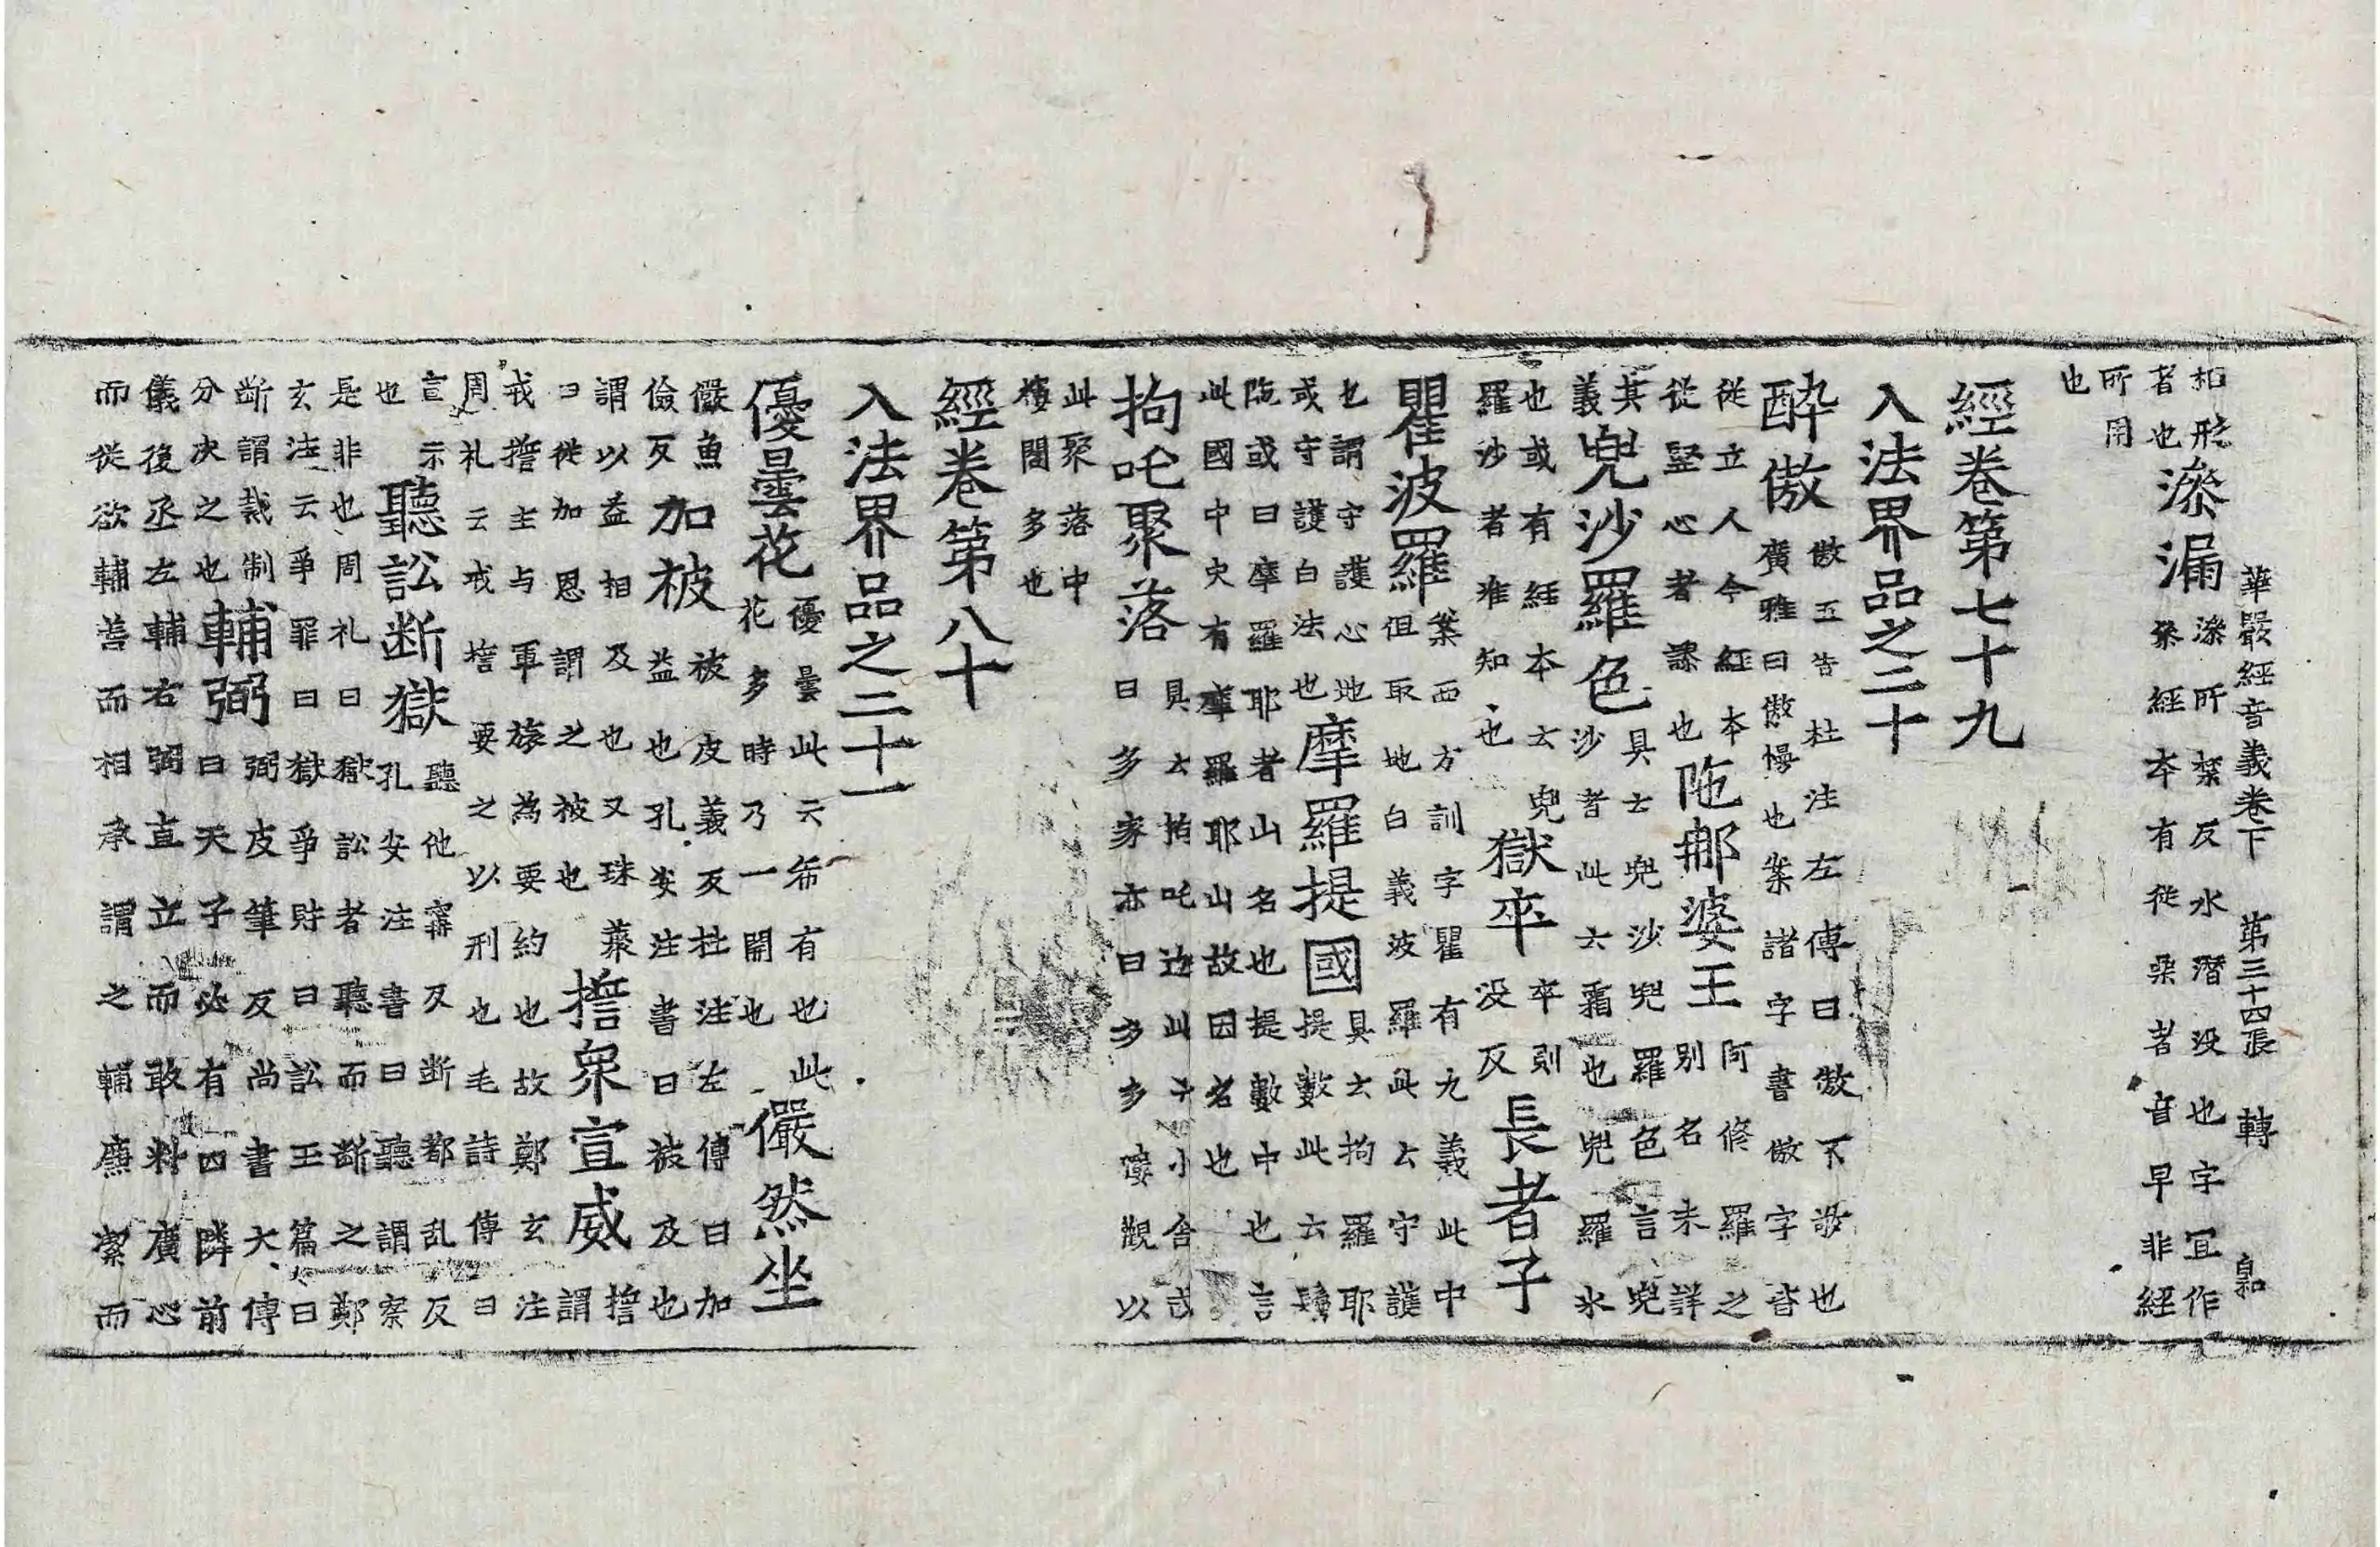 華嚴經音義卷下 第三十四張 轉 自和
和形
者也
滲漏
滲所禁反水潛没也字冝作
叅經本有從喿者音早非經
所用
也
經卷第七十九
入法界品之二十
醉傲
傲五告杜注左傳曰傲不敬也
廣雅曰傲慢也案諸字書傲字沓
從立人今經本
從竪心者謬也
陁那婆王
阿修羅之
別名未詳
其
義
兜沙羅色
具云兜沙兜羅色言兜
沙者此云霜也兜羅氷
也或有經本云兜
羅沙者准知也
獄卒
卒則
没反
長者子
瞿波羅
案西方訓字瞿有九義此中
但取地白義波羅此云守護
也謂守護心地
或守護白法也
摩羅提國
具云拘羅耶
提數此云鬘
陁或曰摩羅耶者山名也提數中也言
此國中央有摩羅耶山故因名也
拘吒聚落
具云拘吒迦此云小舍或
曰多家亦曰多多樓觀以
此聚落中
樓閣多也
經卷第八十
入法界品之二十一
優曇花
優曇此云希有也此
花多時乃一開也
儼然坐
儼魚
儉反
加被
被皮義反杜注左傳曰加
益也孔安注書曰被及也
謂以益相及也又珠藂
曰徙加恩謂之被也
擔衆宣威
擔
謂
戒擔主与軍旅為要約也故鄭玄注
周礼云戒擔要之以刑也毛詩傳曰
宣示
也
聽訟断獄
聽他寧反断都乱反
孔安注書曰聽謂察
是非也周礼曰獄訟者聽而断之鄭
玄注云爭罪曰獄爭財曰訟王篇曰
断謂裁制
分决之也
輔弼
弼皮筆反尚書大傳
曰天子必有四隣前
儀後丞左輔右弼直立而敢料廣心
而從欲輔善而相承謂之輔廉絜而